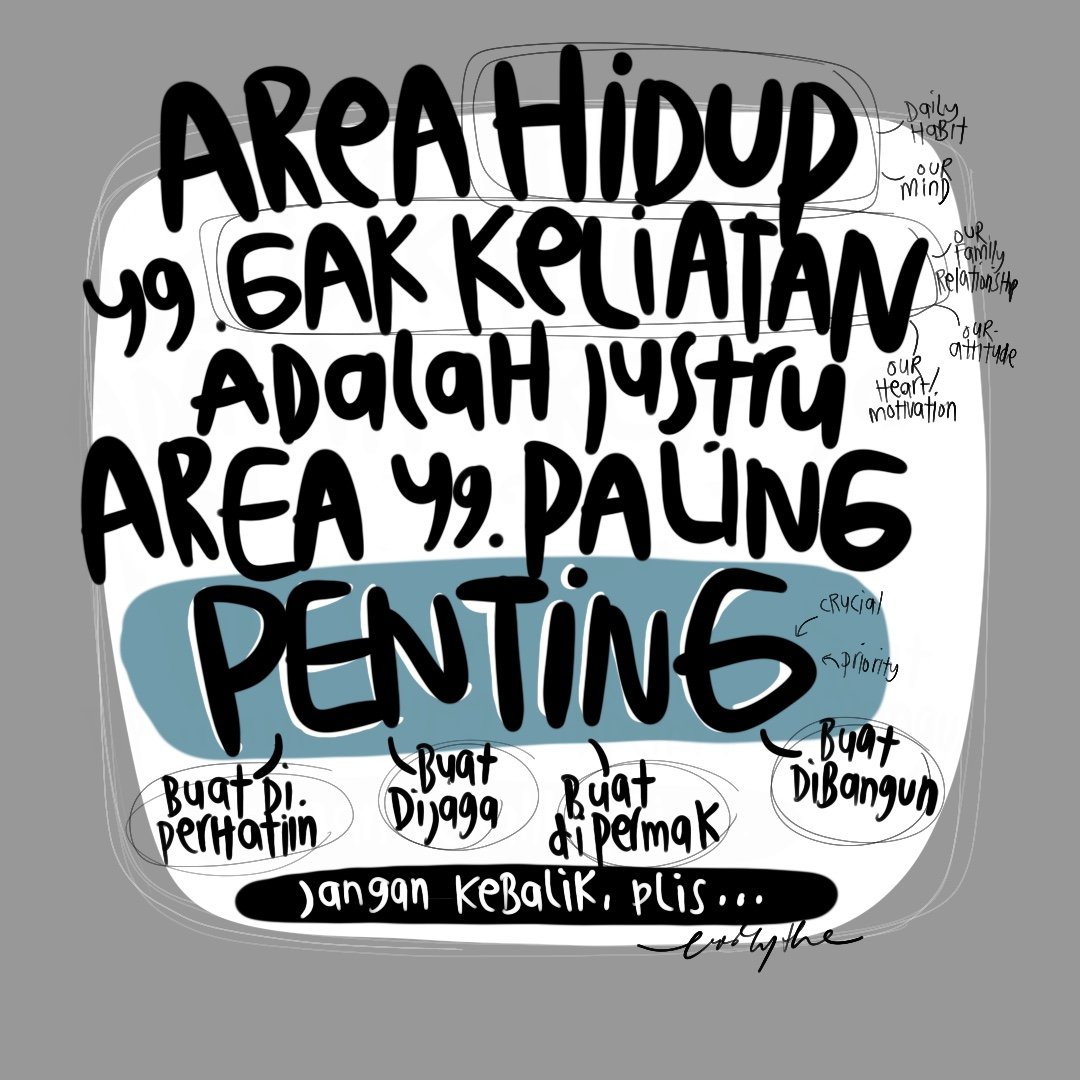 AREA HIDUP
yg. GAK KELIATAN
ADALAH JUSTRU
AREA yg. PALING
PENTING
Daily
HABIT
OUR
MIND
OUR
Family
Relationship
OUR
attitude
OUR
Heart/
motivation
CRUCIAL
priority
Buat Di.
perHatiin
Buat
Dijaga
Buat
di permak
Buat
DiBangun
Jangan KeBaliK, plis...